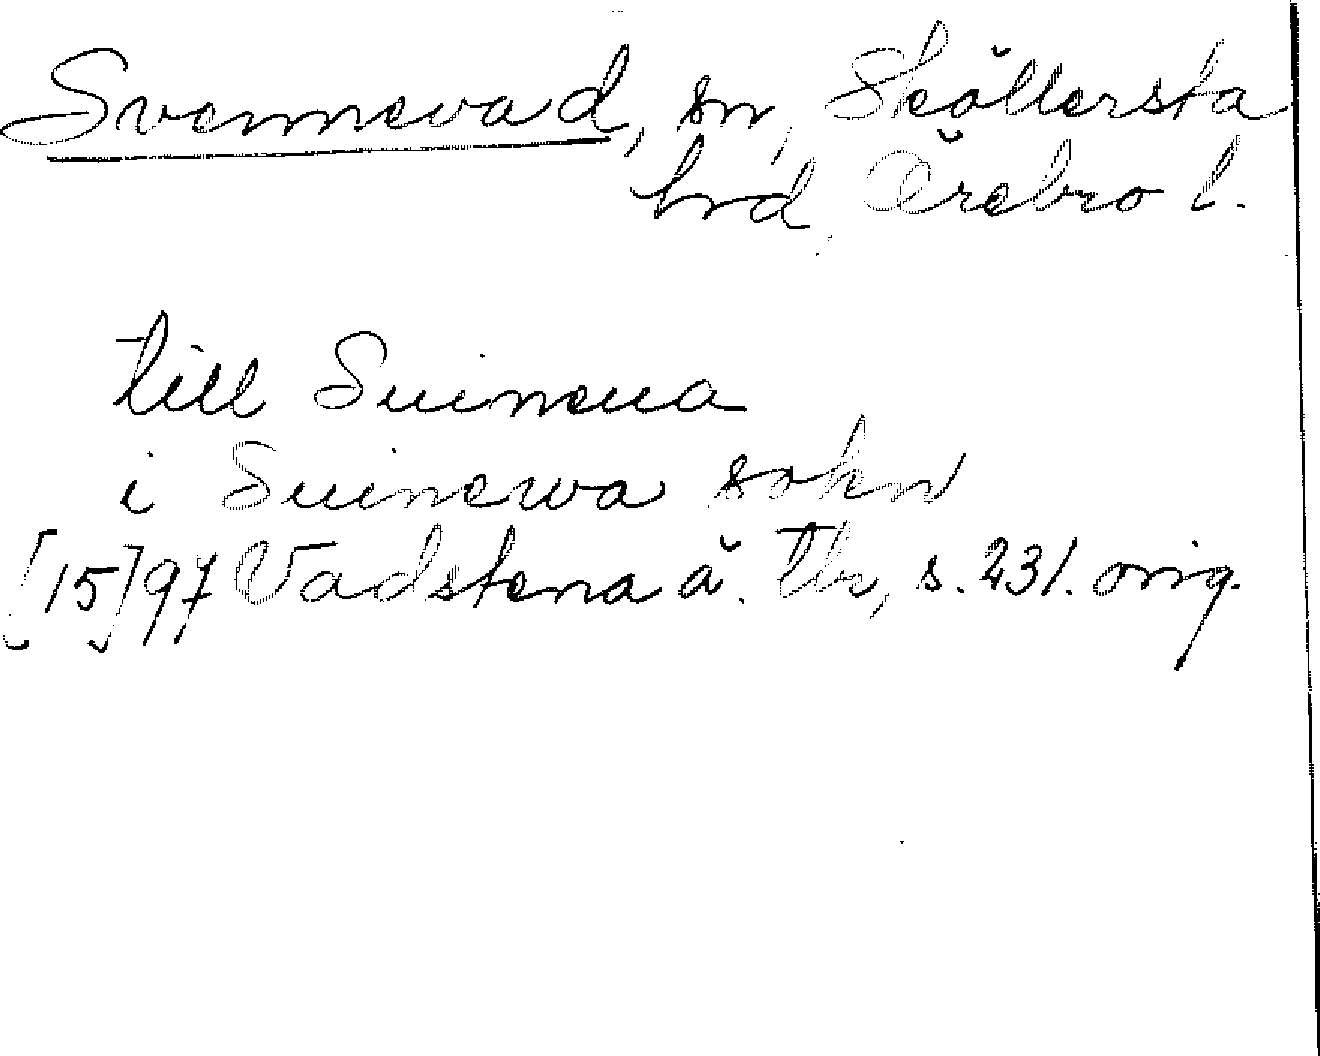 Svennevad, sn, Sköllersta
hrd, Örebro l.
till Suineua
i Suinewa sokn
[15]97 Vadstena ä. Tb, s. 231. orig.